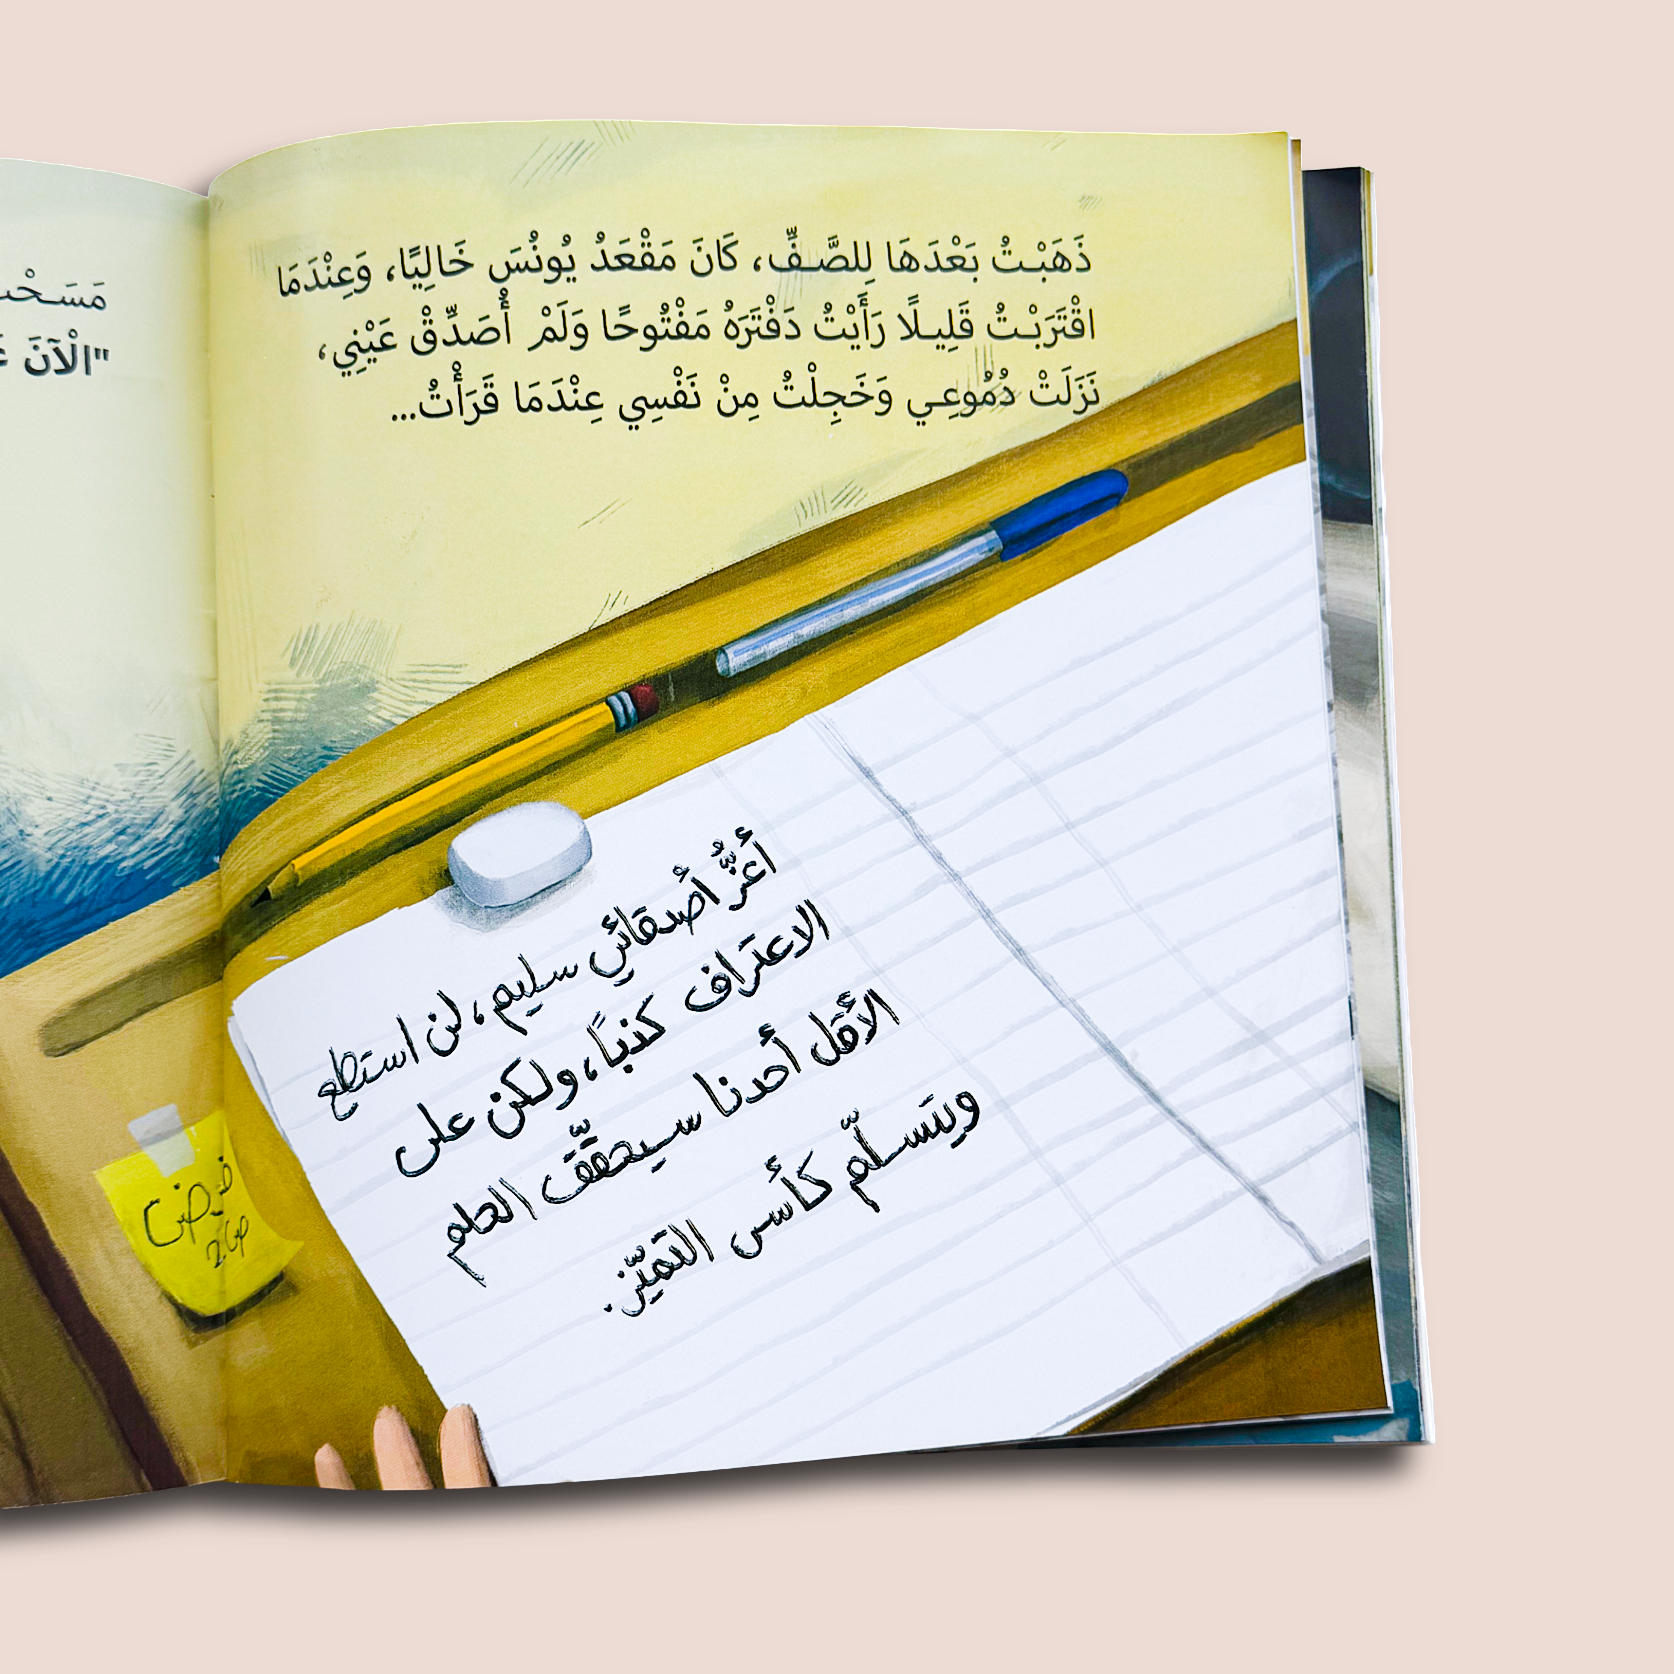 ذَهَبْتُ بَعْدَهَا لِلصَّفِّ، كَانَ مَقْعَدُ يُونُسَ خَالِيًا، وَعِنْدَمَا
اقْتَرَبْتُ قَلِيلًا رَأَيْتُ دَفْتَرَهُ مَفْتُوحًا وَلَمْ أُصَدِّقْ عَيْنِي،
نَزَلَتْ دُمُوعِي وَخَجِلْتُ مِنْ نَفْسِي عِنْدَمَا قَرَأْتُ...
أعَزُّ أصْدقائي سليم، لن استطع
الاعتراف كذبًا، ولكن على
الأقل أحدنا سيحقّقَ الحلم
ويتسلّم كأس التميّز.
"الْآنَ